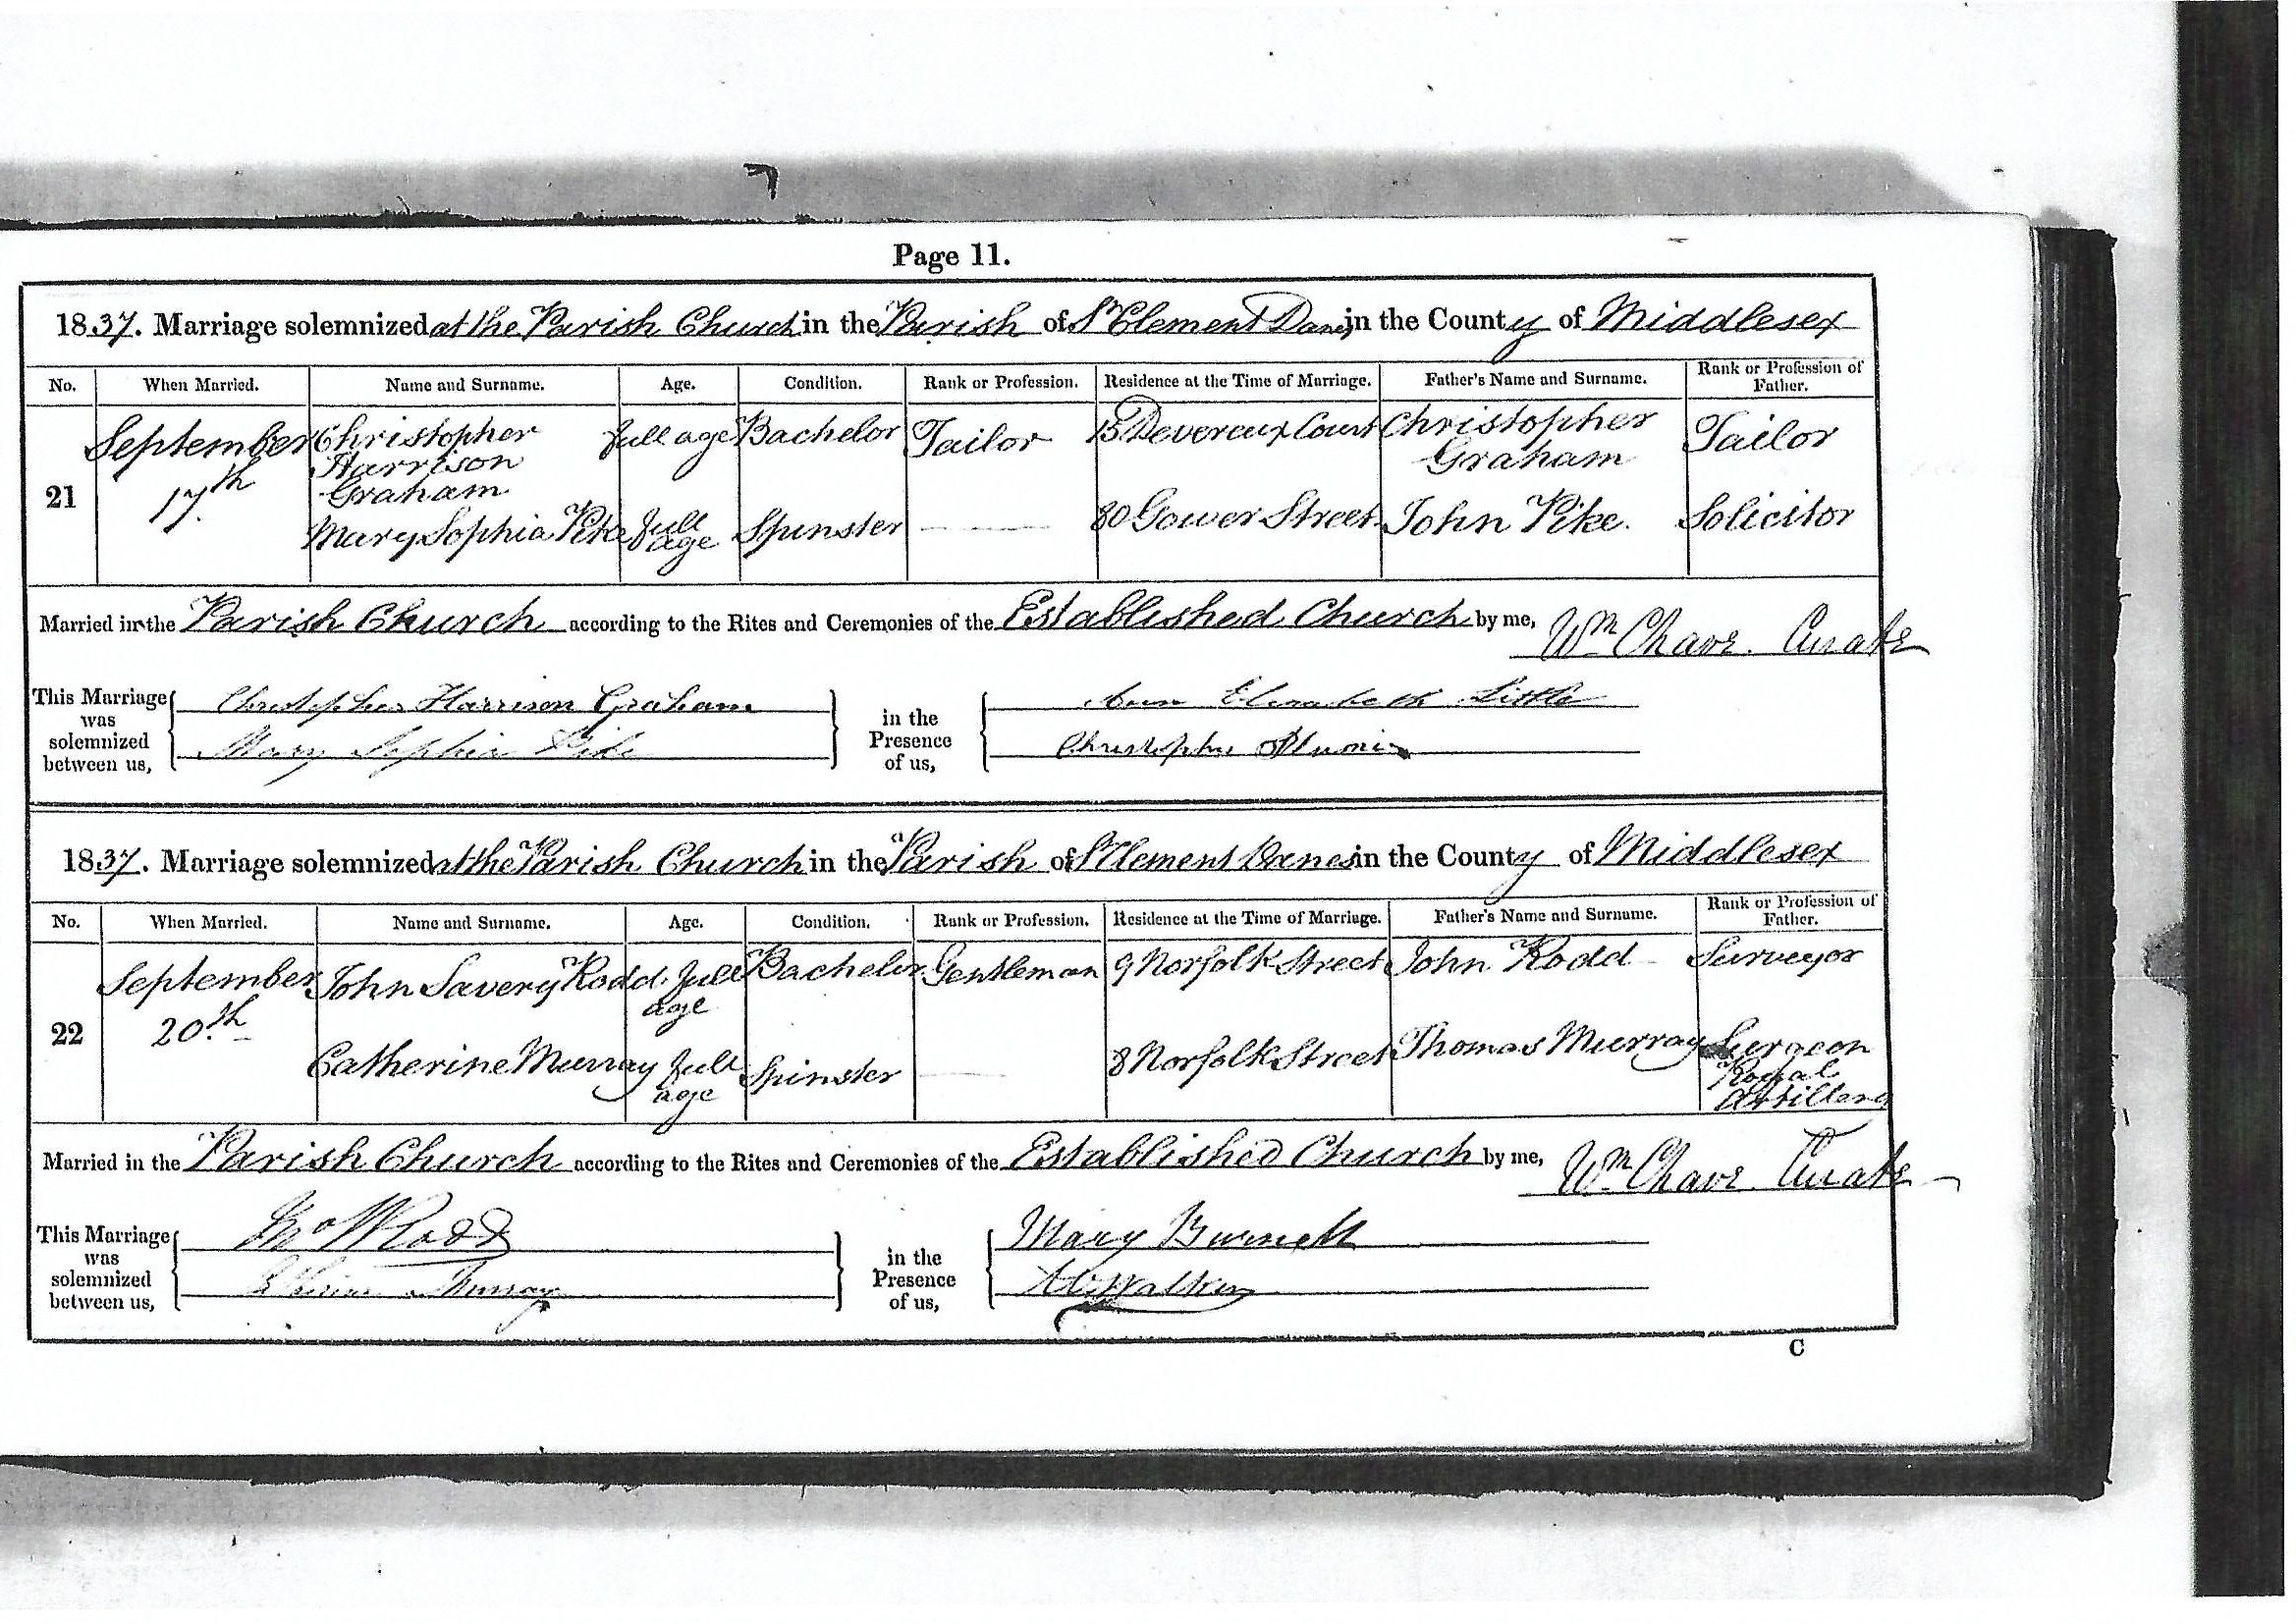 Page 11.
1837. Marriage solemnized at the Parish Church in the Parish of St Clement Danes in the County of Middlesex
No. When Married. Name and Surname. Age. Condition. Rank or Profession. Residence at the Time of Marriage. Father's Name and Surname. Rank or Profession of Father.
21 September 17th Christopher Harrison Graham full age Bachelor Tailor 15 Devereux Court Christopher Graham Tailor
Mary Sophia Pike full age Spinster 80 Gower Street John Pike. Solicitor
Married in the Parish Church according to the Rites and Ceremonies of the Established Church by me, Wm Chave. Curate
This Marriage was solemnized between us, Christopher Harrison Graham in the Presence of us, Ann Elizabeth Little
Mary Sophia Pike Christopher
1837. Marriage solemnized at the Parish Church in the Parish of St Clement Danes in the County of Middlesex
No. When Married. Name and Surname. Age. Condition. Rank or Profession. Residence at the Time of Marriage. Father's Name and Surname. Rank or Profession of Father.
22 September 20th John Savery Rodd full age Bachelor Gentleman 9 Norfolk Street John Rodd Surveyor
Catherine Murray full age Spinster 8 Norfolk Street Thomas Murray Surgeon Royal Artillery
Married in the Parish Church according to the Rites and Ceremonies of the Established Church by me, Wm Chave Curate
This Marriage was solemnized between us, Jno Rodd in the Presence of us, Mary Burnett
Murray Walker
C